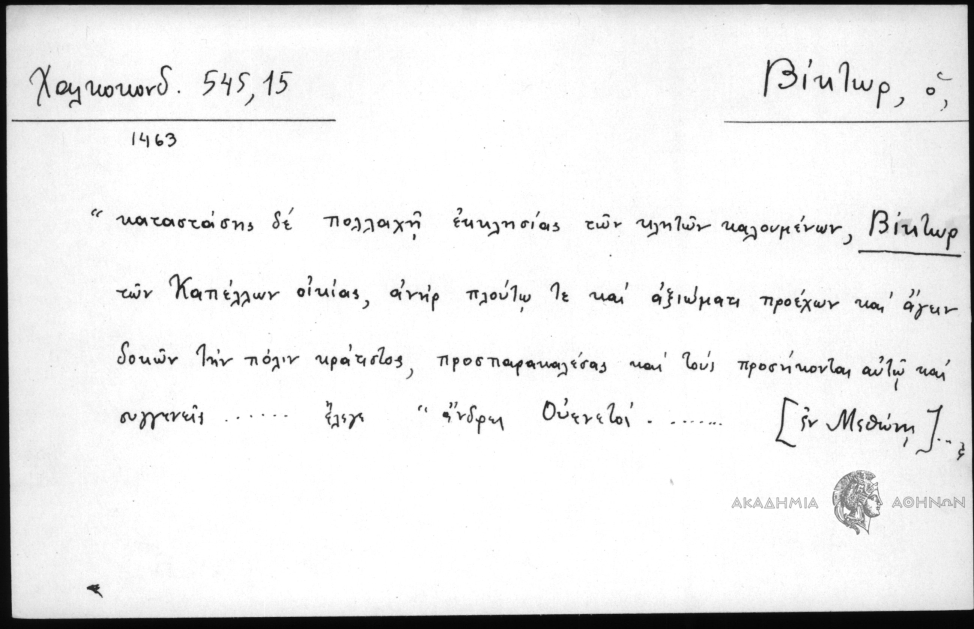 Χαλκοκονδ. 545,15
Βίκτωρ, ὁ,
1463
“ καταστάσης δέ πολλαχῇ ἐκκλησίας τῶν κλητῶν καλουμένων, Βίκτωρ
τῶν Καπέλλων οἰκίας, ἀνήρ πλούτῳ τε καί ἀξιώματι προέχων καί ἄγειν
δοκῶν τήν πόλιν κράτιστος, προσπαρακαλέσας καί τούς προσήκοντας αὐτῷ καί
συγγενεῖς ...... ἔλεγε “ ἄνδρες Οὐενετοί ........ [ἐν Μεθώνῃ]...
ΑΚΑΔΗΜΙΑ ΑΘΗΝΩΝ